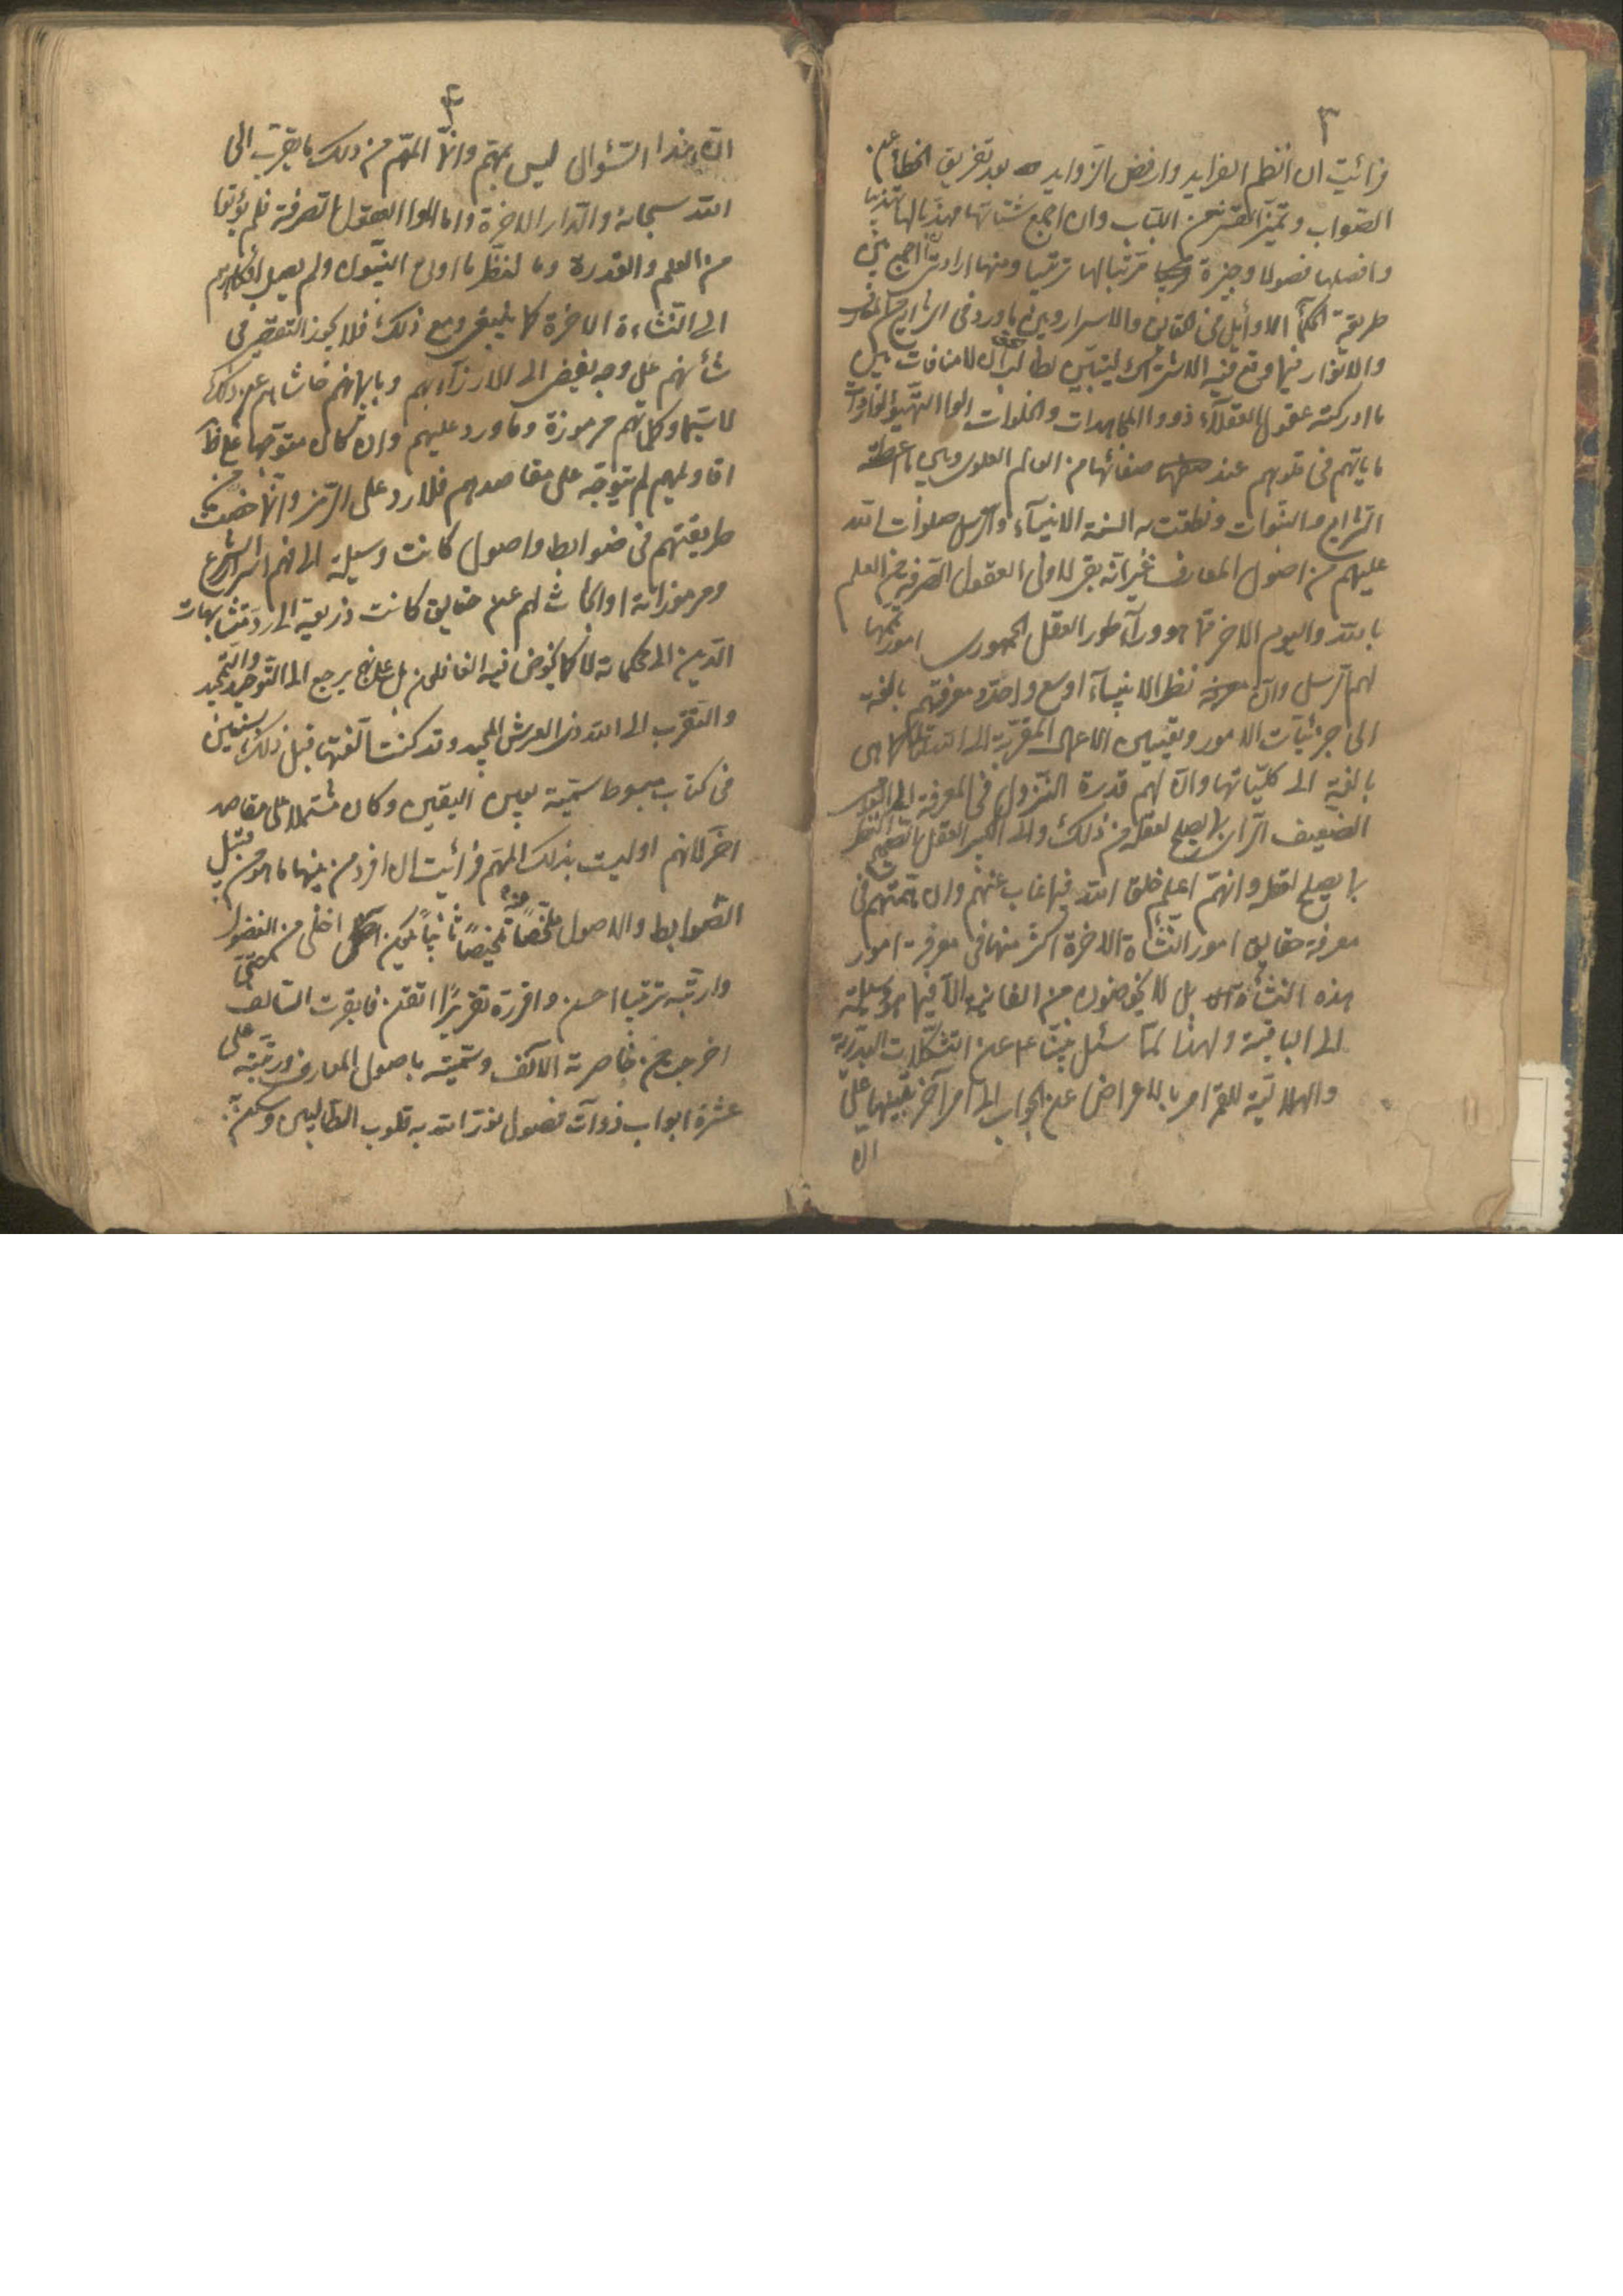 ٣
فرأيت ان انظم الفرايد وارفض الزوايد بعد تفريق الخطأ عن
الصواب وتميز القشر عن اللباب وان اجمع شتاتها مهذبا لها تهذيبا
وافصلها فصولا وجيزة مرتبا لها ترتيبا ومنها ارادتى ان اجمع بين
طريقة الحكمآء الاوايل فى الحقايق والاسرار وبين ما ورد فى الشرايع من المعارف
والانوار فيما وقع فيه الاشتراك ليتبين لطالب الحق ان لا منافات بين
ما ادركته عقول العقلآء ذووا المجاهدات والخلوات اولوا التهيؤ لواردات
ما ياتيهم فى قلوبهم عند صفائها من العالم العلوى وبين ما اعطته
الشرايع والنبوات ونطقت به السنة الانبيآء والرسل صلوات الله
عليهم من اصول المعارف غير انه بقى لاولى العقول الصرفة من العلم
بالله واليوم الاخر ما هو ورآء طور العقل الجمهورى امور تممها
لهم الرسل وان نظر الانبيآء اوسع واحد ومعرفتهم بالغة
الى جزئيات الامور وتعيين الاعمال المقربة الى الله تعالى كما هى
بالغة الى كلياتها وان لهم قدرة النزول فى المعرفة الى العامى
الضعيف الراى بما يصلح لعقله من ذلك والى الكبير العقل الصحيح النظر
بما يصلح لعقله وانهم اعلم خلق الله فيما غاب عنهم وان همتهم فى
معرفة حقايق امور النشاة الاخرة اكثر منها فى معرفة امور
هذه النشأة بل لا يخوضون من الفانية الا فيما هو وسيلة
الى الباقية ولهذا لما سئل نبينا ع عن التشكلات البدرية
والهلالية للقمر امر بالاعراض عن الجواب الى امر آخر تنبيها على
ان
٤
ان هذا السّؤال ليس بمهم وانما المهم من ذلك ما يقرب الى
الله سبحانه والدار الاخرة واما اولوا العقول الصرفة فلم يؤتوا
من العلم والقدرة وما لنظر ما اوتى النبيون ولم يصل افكارهم
الى النشاءة الاخرة كما ينبغى ومع ذلك فلا يجوز التقصير فى
شأنهم على وجه يفضى الى الازرآء بهم وبايمانهم حاشاهم عن ذلك
لا سيما وكلماتهم مرموزة وما ورد عليهم وان كان متوجها على ظاهر
اقاويلهم لم يتوجه على مقاصدهم فلا رد على الرمز وانما خضت فى
طريقتهم فى ضوابط واصول كانت وسيلة الى فهم اسرار الشرع
ومرموزاته او ابحاث لهم عن حقايق كانت ذريعة الى رد متشابهات
الدين الى محكماته لا كما يخوض فيه الغافلون بل على نهج يرجع الى التوحيد والتمجيد
والتقرب الى الله ذى العرش المجيد وقد كنت الفتها قبل ذلك بسنين
فى كتاب مبسوط سميته بعين اليقين وكان مشتملا على مقاصد
اخر كانهم اوليت بذلك المهم فرأيت ان افرد من بينها ما هو من قبيل
الضوابط والاصول ملخصا منه تلخيصا ثانيا ليكون اخلى من الفضول
وارتبه ترتيبا احسن واقرره تقريرا اتقن فابقرت السالف
اخرجت من خاصرته الآنف وسميته باصول المعارف ورتبته على
عشرة ابواب ذوآت فصول نور الله به قلوب الطالبين وسكن به